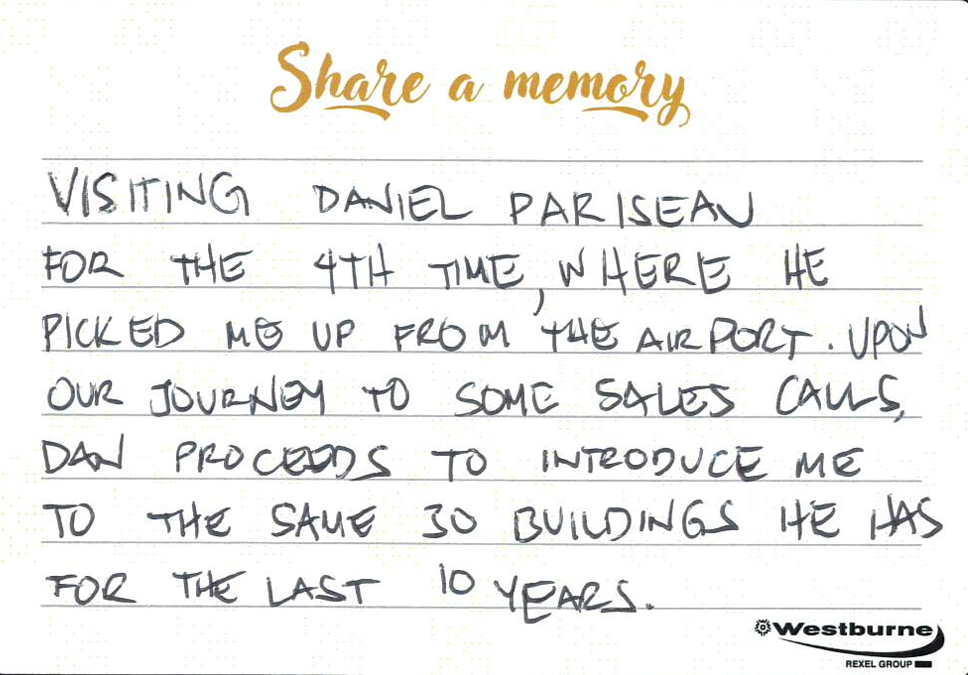 Share a memory
VISITING DANIEL PARISEAU
FOR THE 4TH TIME, WHERE HE
PICKED ME UP FROM THE AIRPORT. UPON
OUR JOURNEY TO SOME SALES CALLS,
DAN PROCEEDS TO INTRODUCE ME
TO THE SAME 30 BUILDINGS HE HAS
FOR THE LAST 10 YEARS.
Westburne
REXEL GROUP